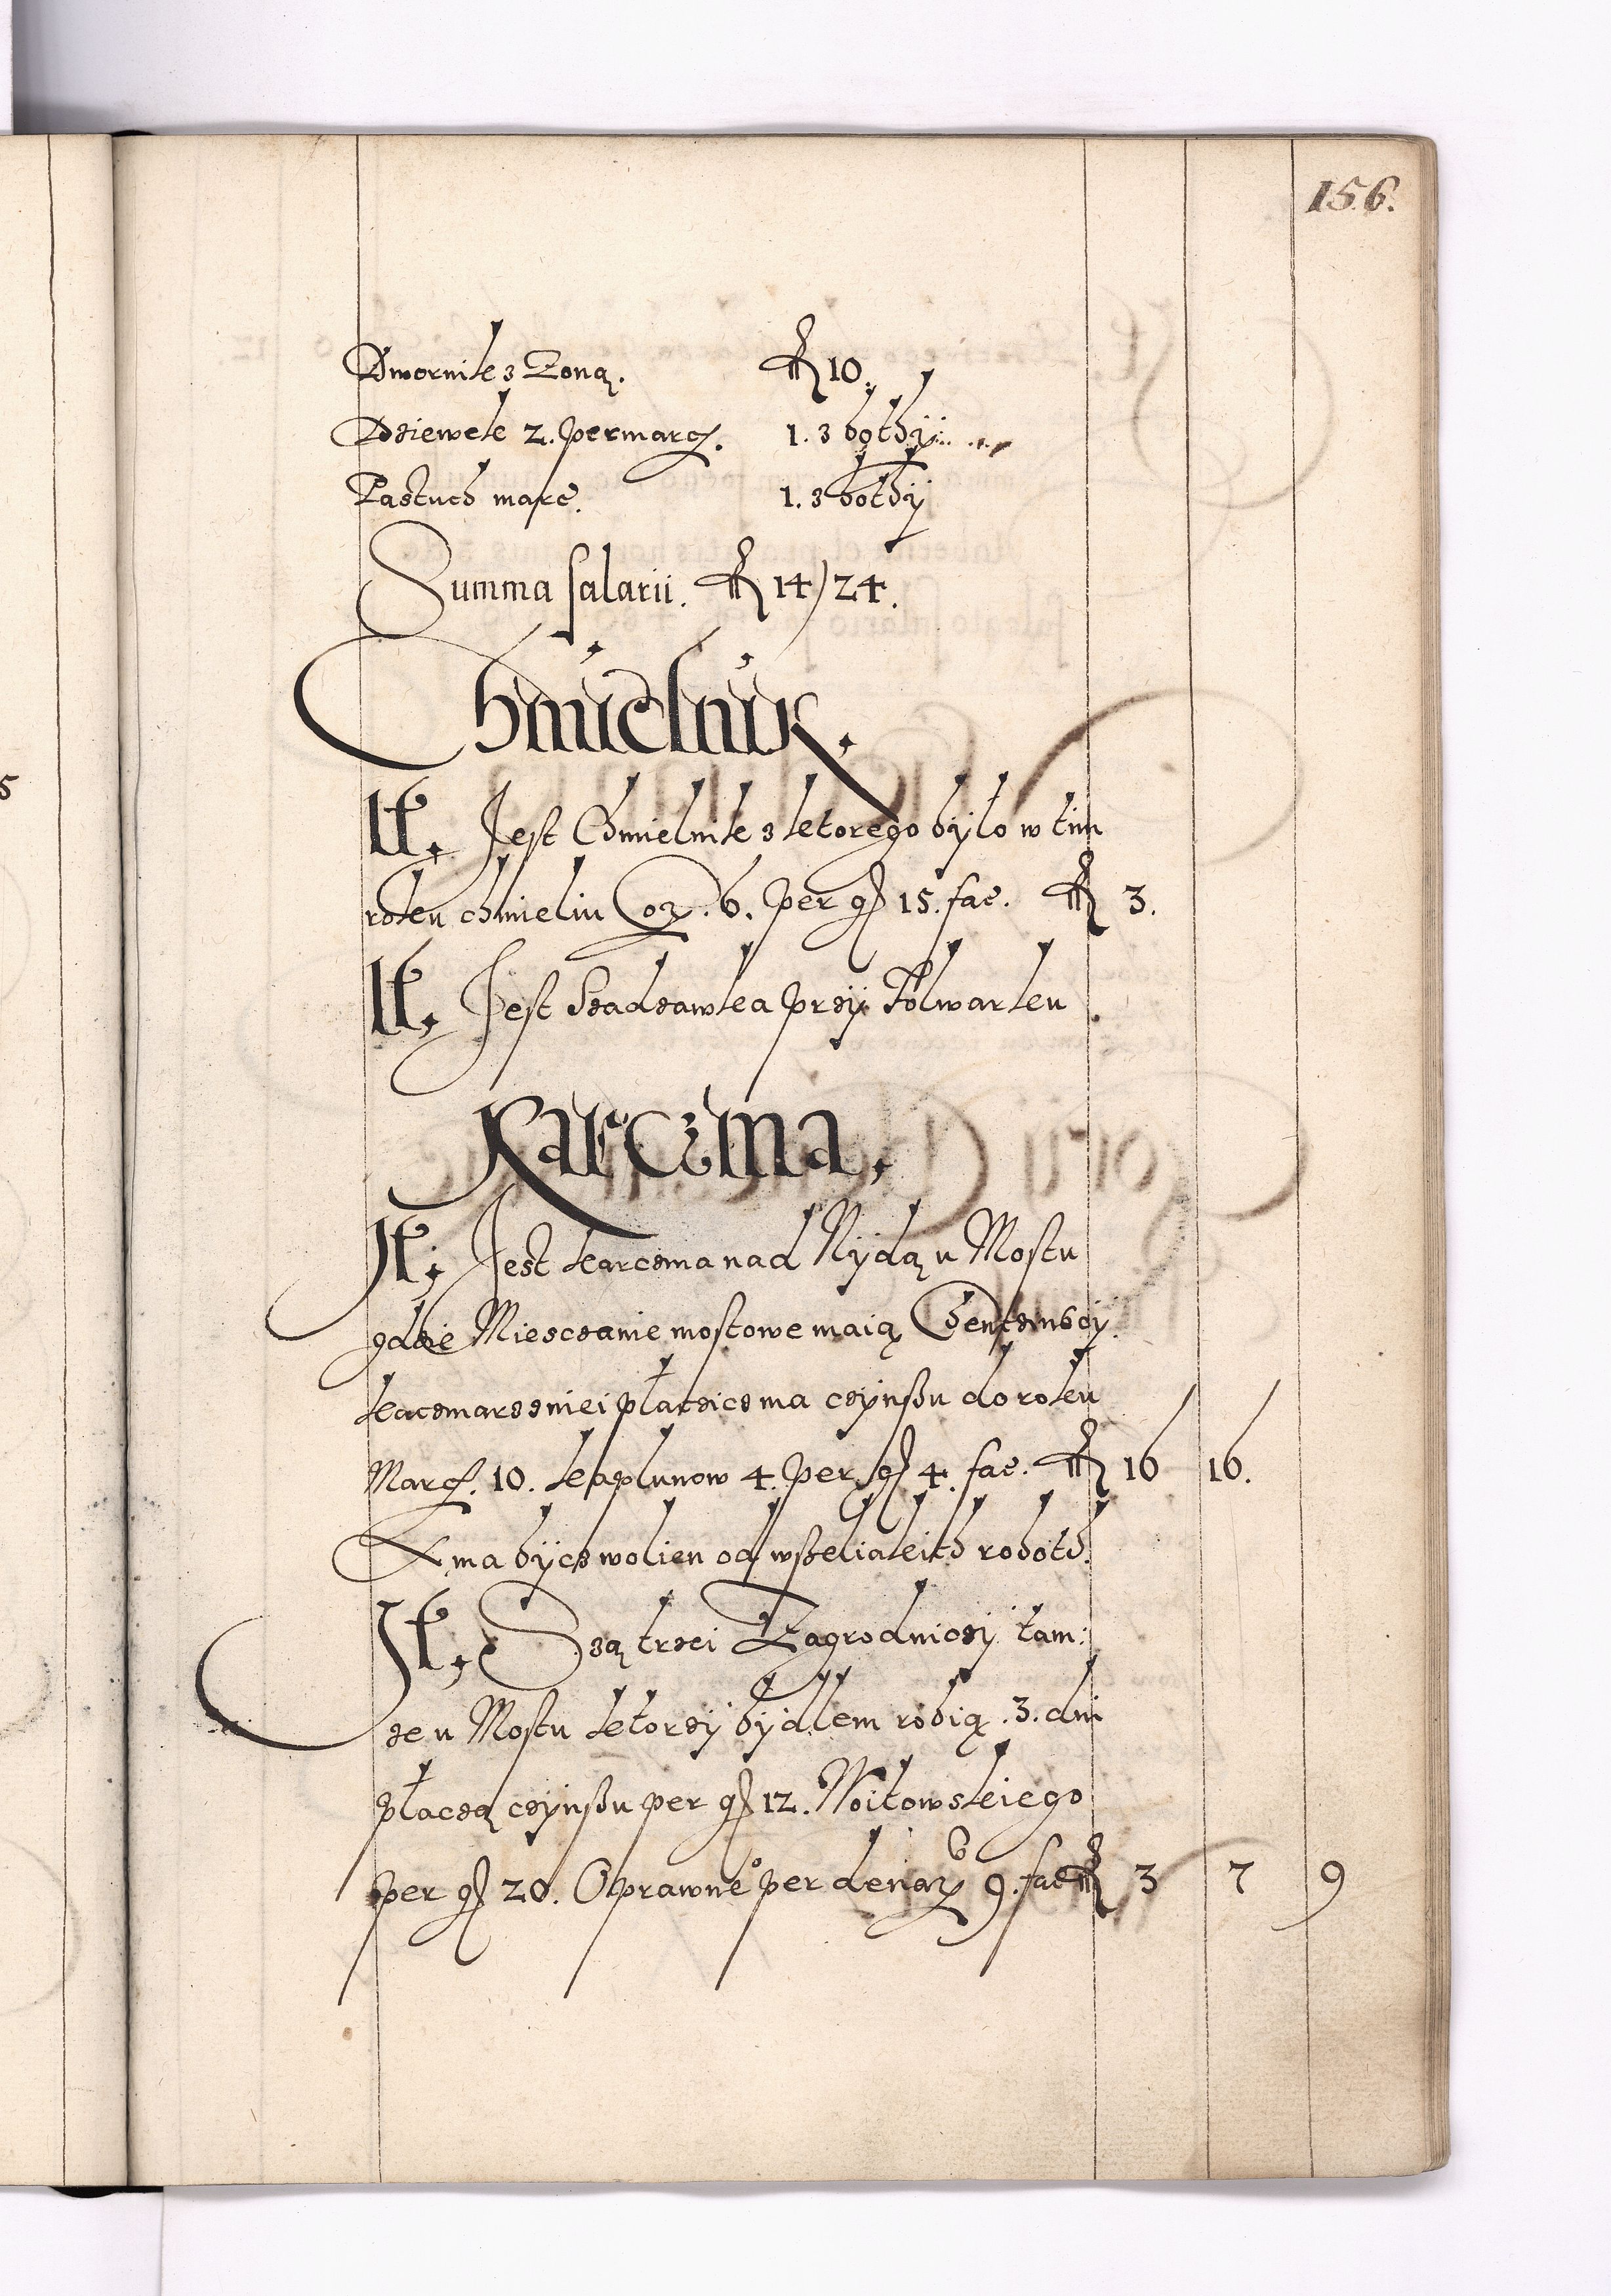 156.
Dwornik z Zoną. 10.
Dziewek 2. per marcas. 1. z bothÿ
Pastuch marc. 1. z bothÿ
Summa salarii. 14/24.
Chmielnik.
It. Jest Chmielnik z ktorego bÿło w tim
roku chmieliu Coz. 6. per gß 15. fac. 3.
It. Jest Sadzawka przÿ Folwarku
Karczma.
It. Jest karczma nad Nÿdą u Mostu
gdzie Miesczanie mostowe maią
kaczmarz z niei płaczicz ma czÿnßu do roku
Marcas. 10. kapłunow 4. per gß 4. fac. 16 16.
A ma bÿcz wolien od wßeliakith roboth.
It. Są trzei Zagrodniczÿ tam
ze u Mostu ktorzÿ bÿdłem robią. 3. dni
płaczą czÿnßu per gß 12. Woitowskiego
per gß 20. Oprawne per denar 9. fac 3 7 9
5